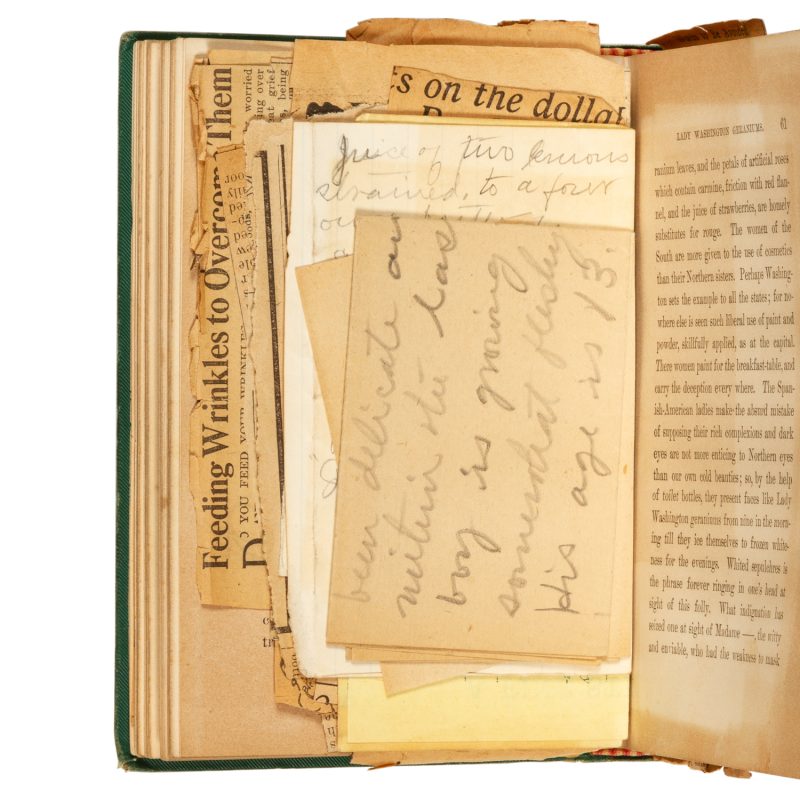 Feeding Wrinkles to Overcom Them
O YOU FEED YOUR WRINKLES
worried
ing over
grief
being
s on the dollar
Juice of two lemons
strained, to a four
been delicate and
boy is growing
somewhat fleshy
His age is 13.
LADY WASHINGTON GERANIUMS. 61
ranium leaves, and the petals of artificial roses
which contain carmine, friction with red flan-
nel, and the juice of strawberries, are homely
substitutes for rouge. The women of the
South are more given to the use of cosmetics
than their Northern sisters. Perhaps Washing-
ton sets the example to all the states; for no-
where else is seen such liberal use of paint and
powder, skillfully applied, as at the capital.
There women paint for the breakfast-table, and
carry the deception every where. The Span-
ish-American ladies make the absurd mistake
of supposing their rich complexions and dark
eyes are not more enticing to Northern eyes
than our own cold beauties; so, by the help
of toilet bottles, they present faces like Lady
Washington geraniums from nine in the morn-
ing till they ice themselves to frozen white-
ness for the evenings. Whited sepulchres is
the phrase forever ringing in one's head at
sight of this folly. What indignation has
seized one at sight of Madame —, the witty
and enviable, who had the weakness to mask